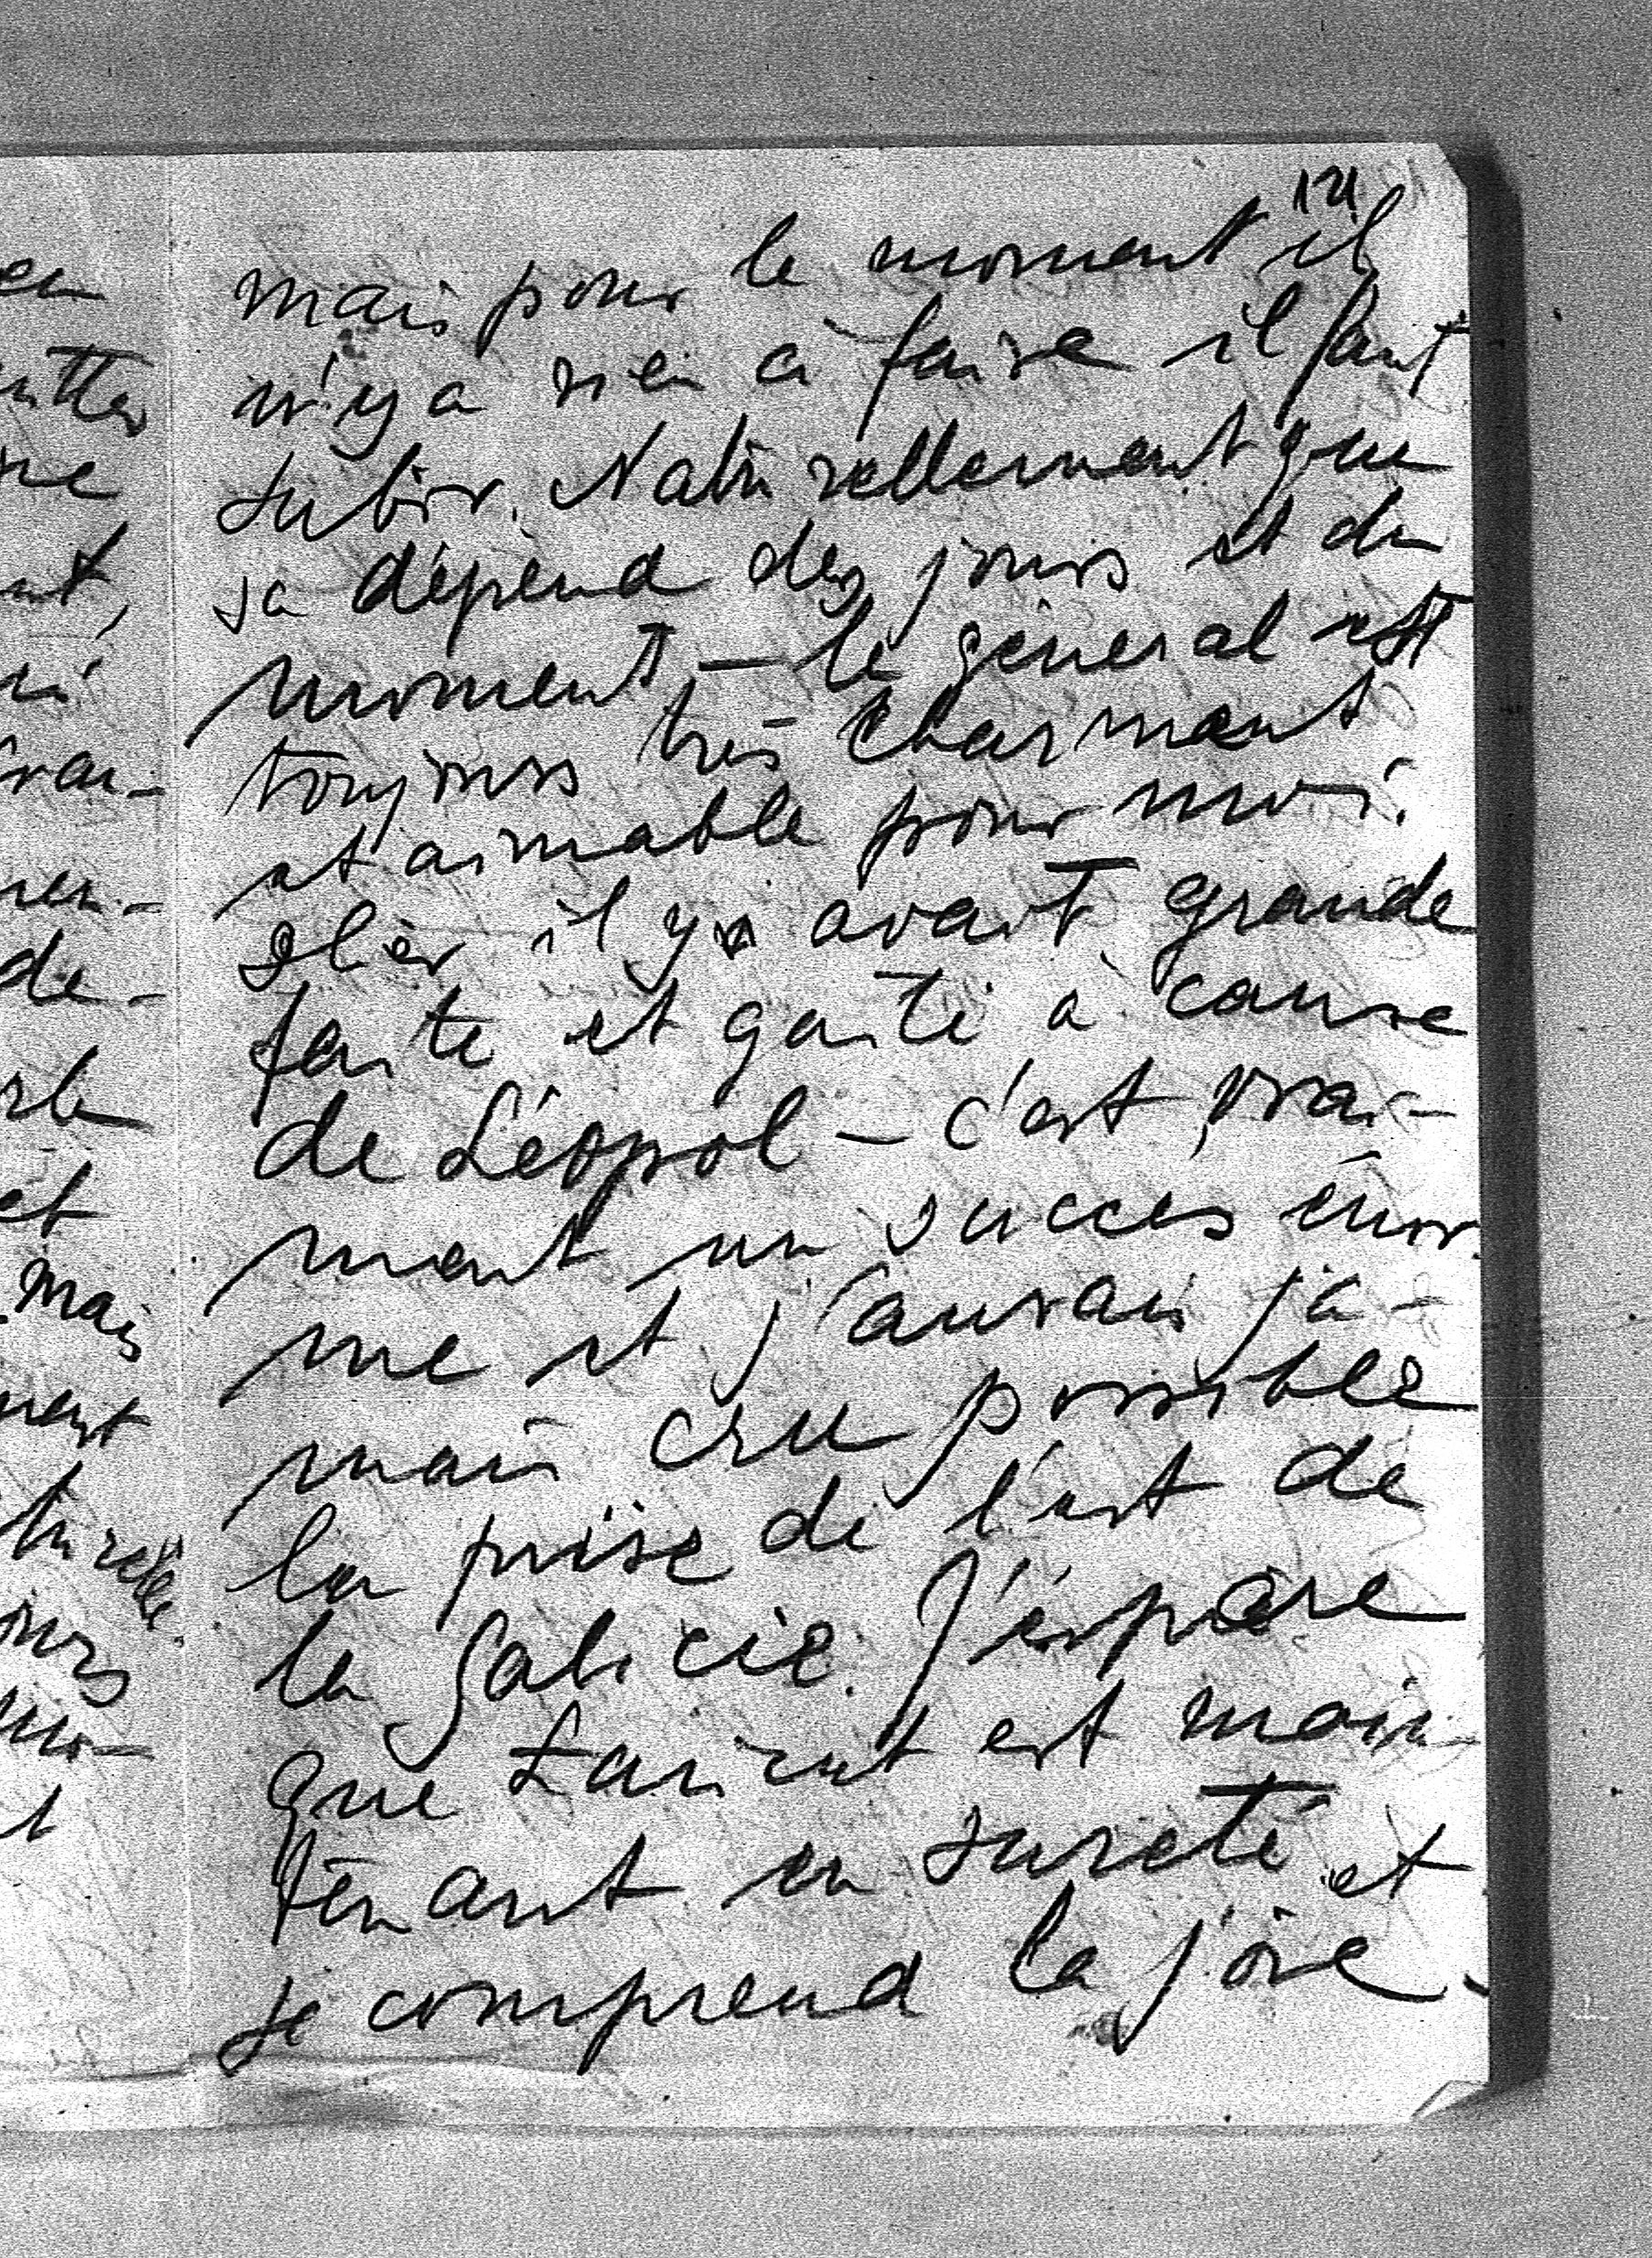 mais pour le moment il
n'y a rien à faire il faut
subir. Naturellement que
sa dépend des jours et du
moment — le général est
toujours très charmant
et aimable pour moi.
Hier il y avait grande
faite et gaité à cause
de Léopol — c'est vrai-
ment un succès énor-
me et j'aurais ja-
mais cru possible
la prise de l'est de
la Galicie. J'éspère
que Lancut est main-
tenant en sureté et
je comprend la joie